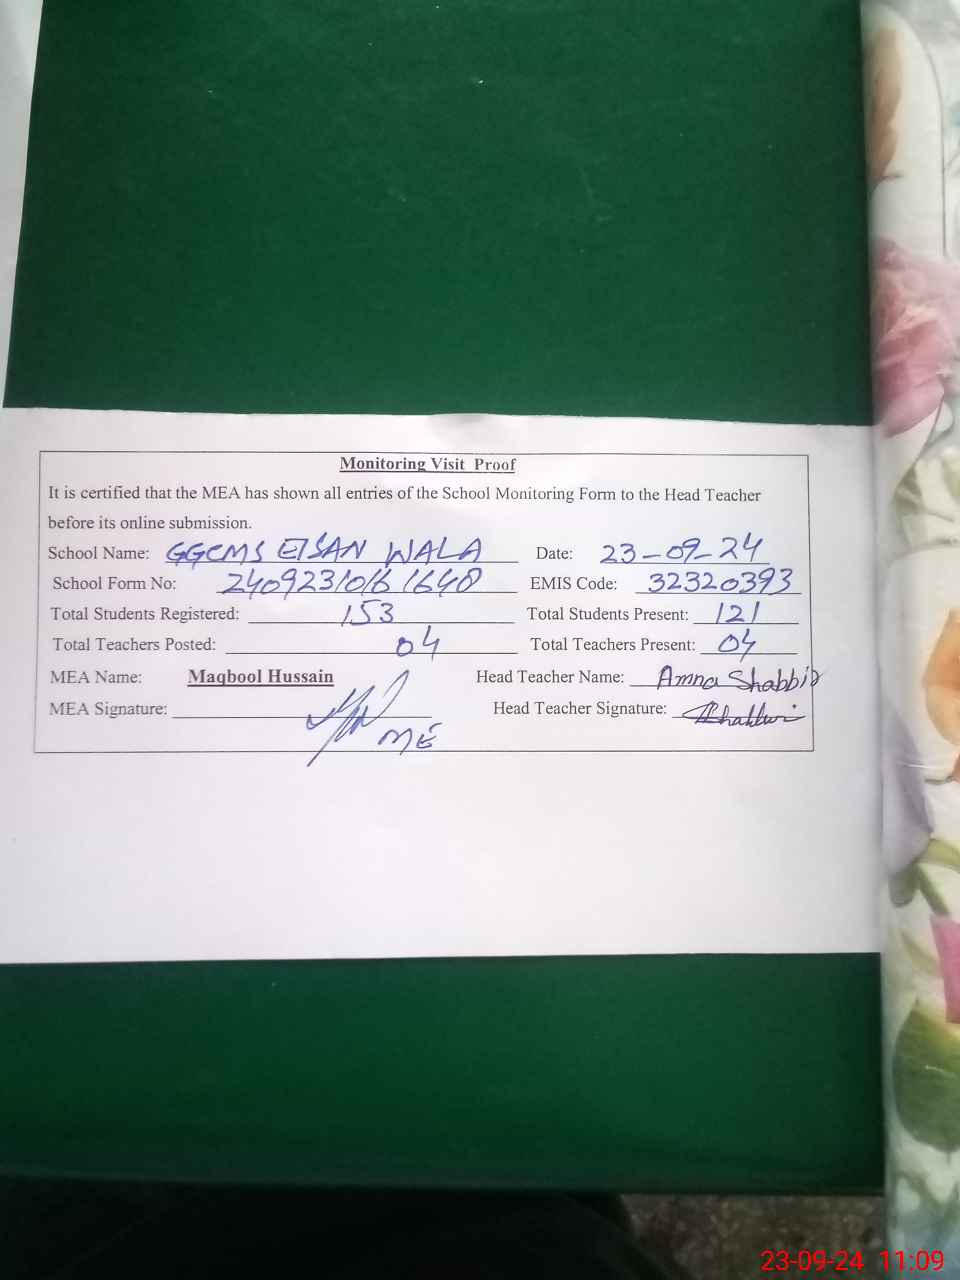 Monitoring Visit Proof
It is certified that the MEA has shown all entries of the School Monitoring Form to the Head Teacher
before its online submission.
School Name: GGCMS EISAN WALA Date: 23-09-24
School Form No: 2409231016 1640 EMIS Code: 32320393
Total Students Registered: 153 Total Students Present: 121
Total Teachers Posted: 04 Total Teachers Present: 04
MEA Name: Maqbool Hussain Head Teacher Name: Amna Shabbir
MEA Signature: Head Teacher Signature:
23-09-24 11:09